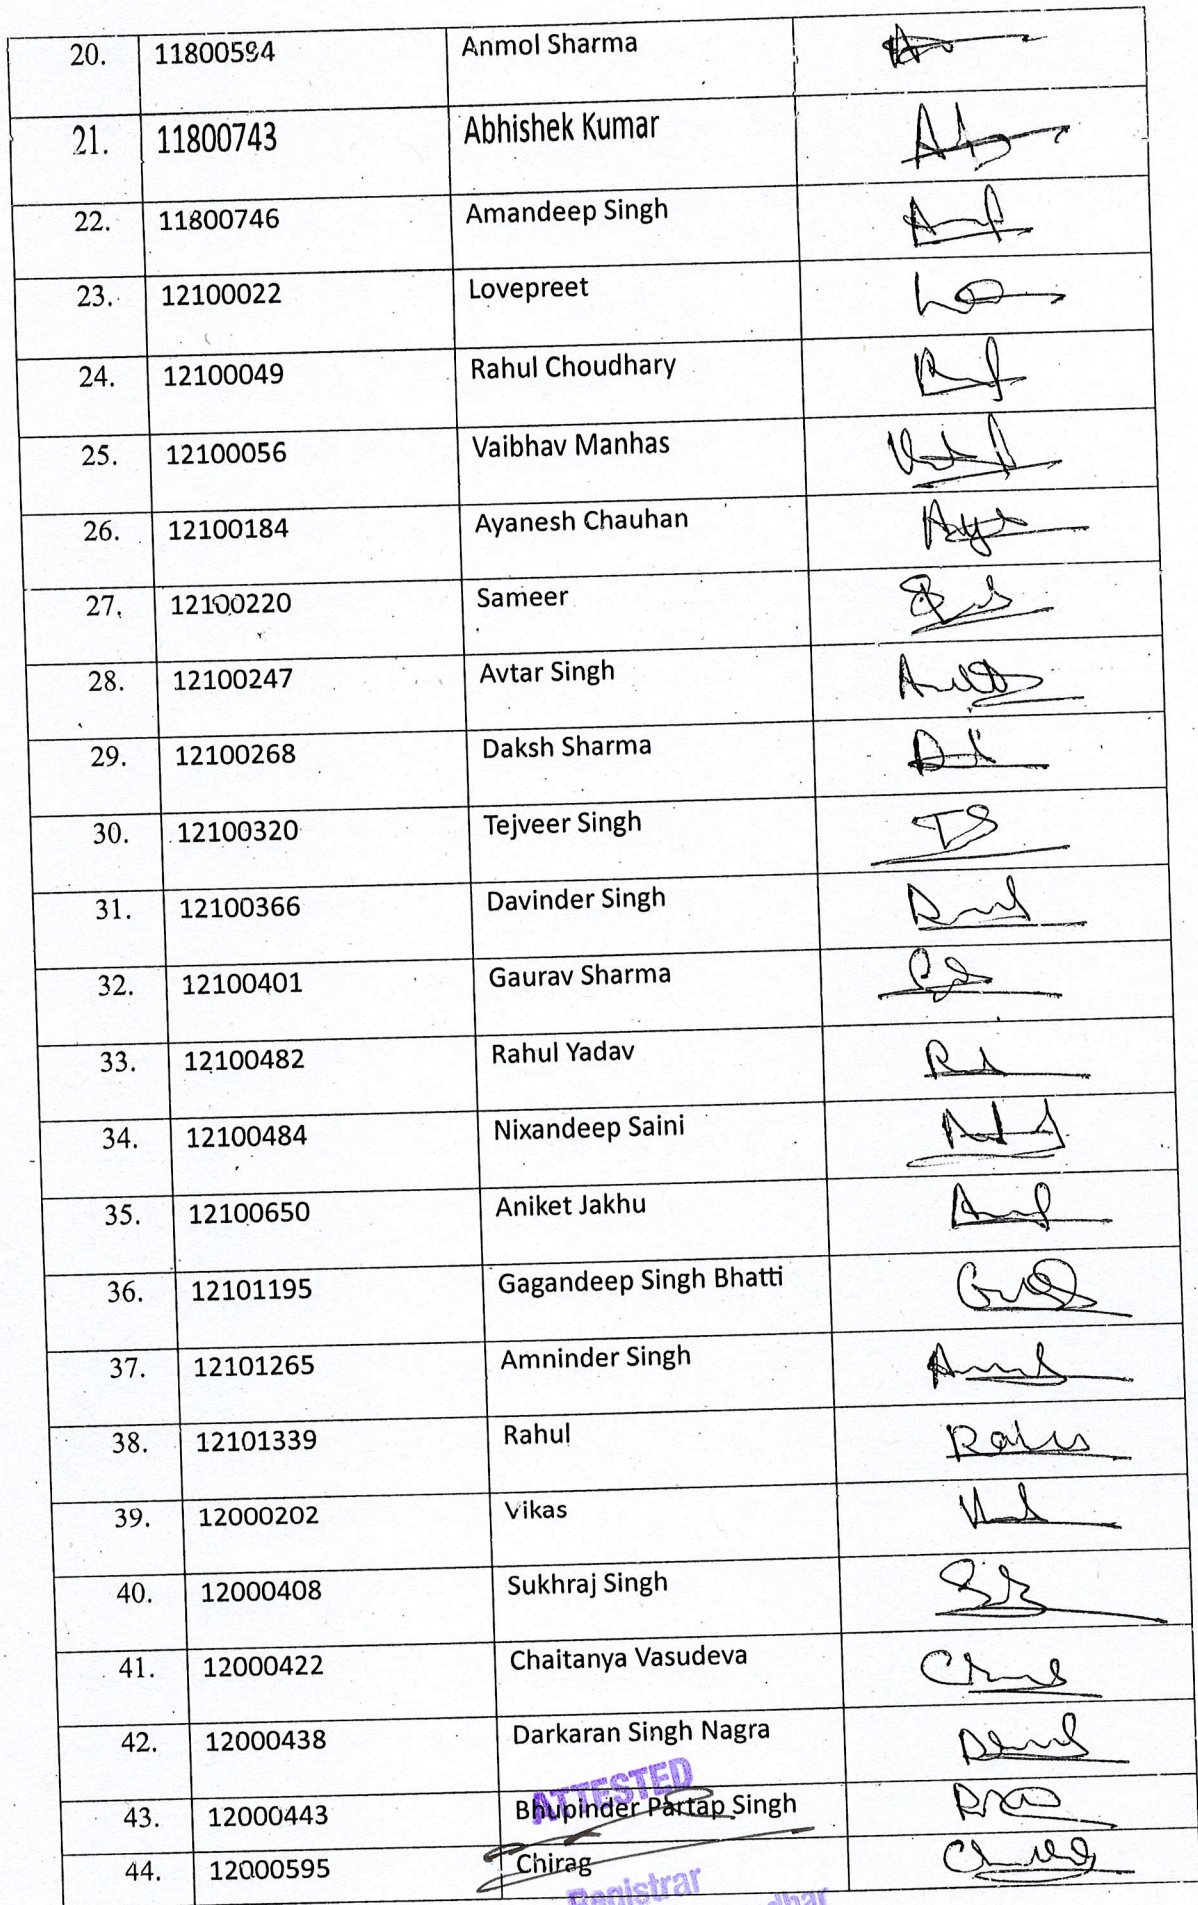 20. 11800594 Anmol Sharma
21. 11800743 Abhishek Kumar
22. 11800746 Amandeep Singh
23. 12100022 Lovepreet
24. 12100049 Rahul Choudhary
25. 12100056 Vaibhav Manhas
26. 12100184 Ayanesh Chauhan
27. 12100220 Sameer
28. 12100247 Avtar Singh
29. 12100268 Daksh Sharma
30. 12100320 Tejveer Singh TS
31. 12100366 Davinder Singh
32. 12100401 Gaurav Sharma
33. 12100482 Rahul Yadav
34. 12100484 Nixandeep Saini
35. 12100650 Aniket Jakhu
36. 12101195 Gagandeep Singh Bhatti
37. 12101265 Amninder Singh
38. 12101339 Rahul
39. 12000202 Vikas
40. 12000408 Sukhraj Singh
41. 12000422 Chaitanya Vasudeva
42. 12000438 Darkaran Singh Nagra
ATTESTED
43. 12000443 Bhupinder Partap Singh
44. 12000595 Chirag
Registrar